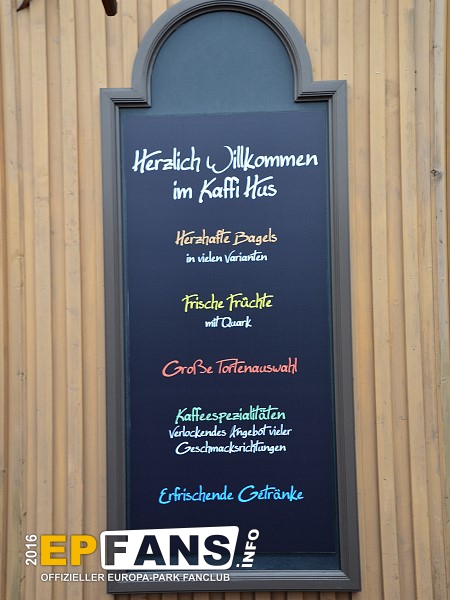 Herzlich Willkommen
im Kaffi Hus
Herzhafte Bagels
in vielen Varianten
Frische Früchte
mit Quark
Große Tortenauswahl
Kaffeespezialitäten
Verlockendes Angebot vieler
Geschmacksrichtungen
Erfrischende Getränke
2016
EPFANS.INFO
OFFIZIELLER EUROPA-PARK FANCLUB